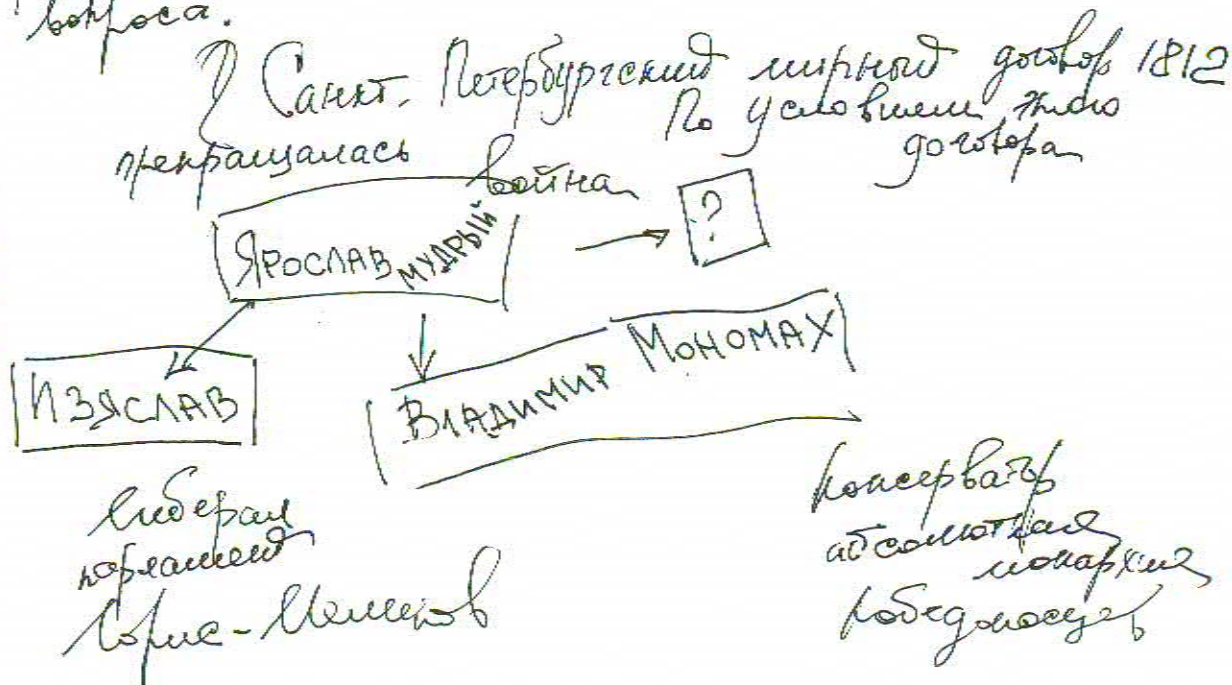 вопроса.
Санкт. Петербургский мирный договор 1812
По условиям этого
договора
прекращалась
война
Ярослав Мудрый
?
Изяслав
Владимир Мономах
либерал
парламент
Лорис-Меликов
консерватор
абсолютная
монархия
Победоносцев